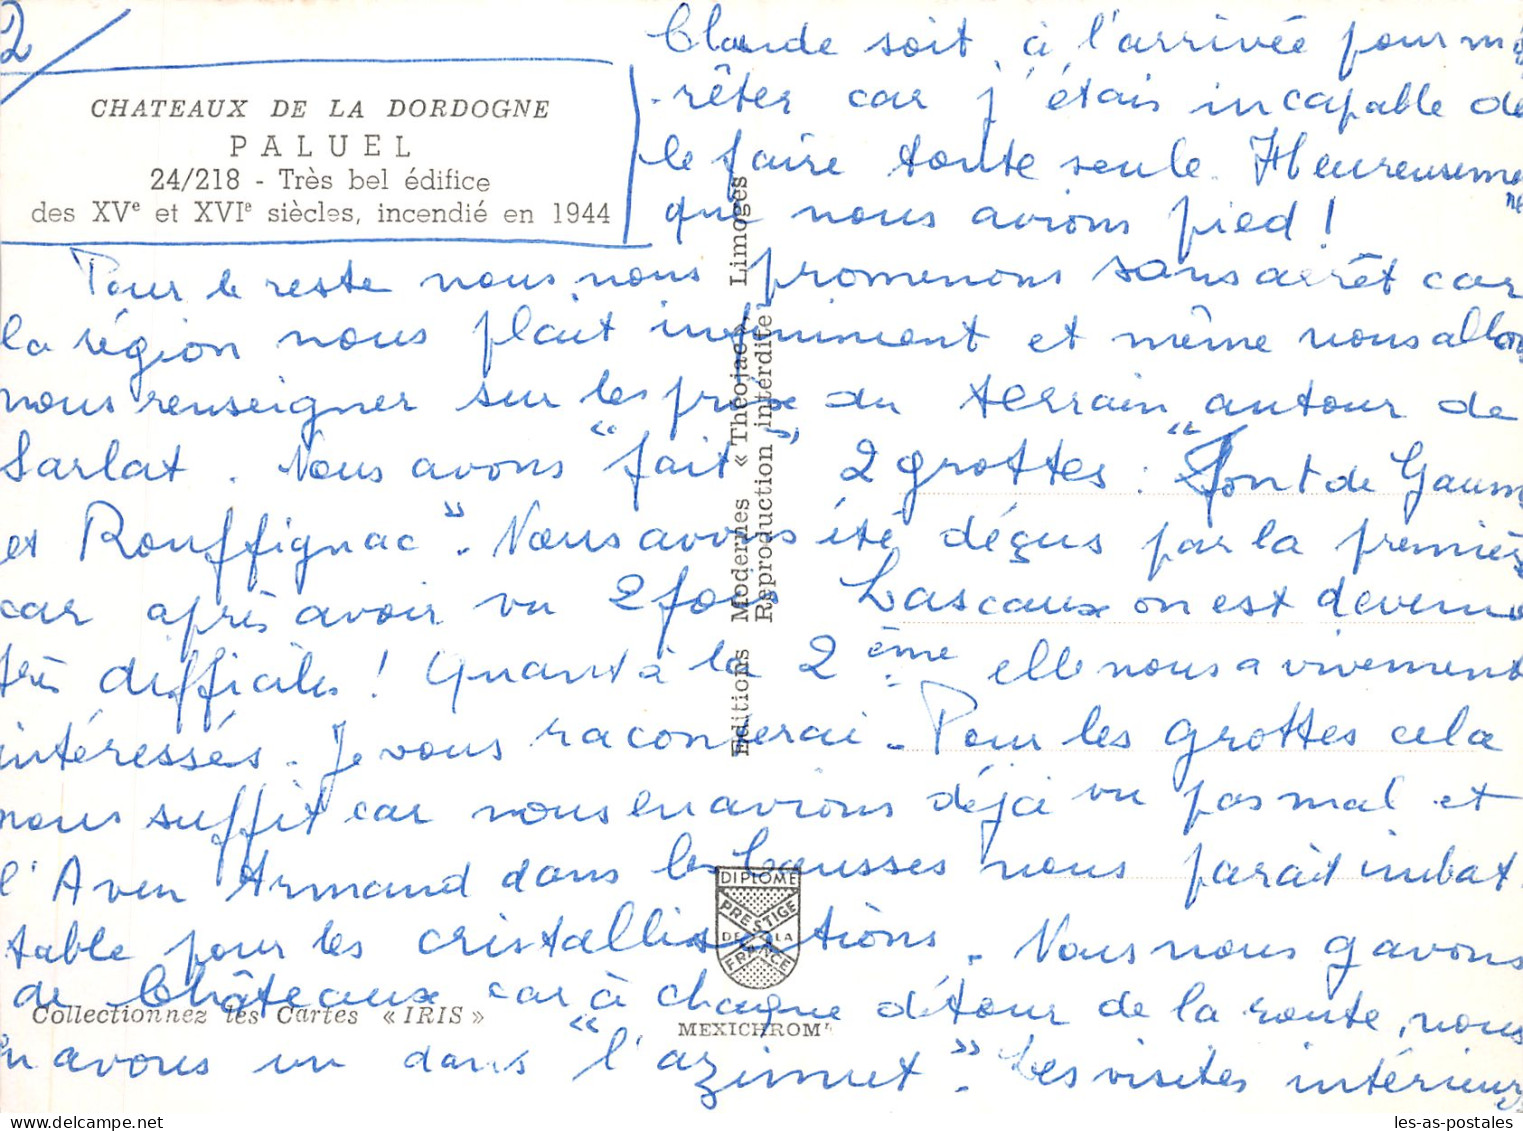 2
CHATEAUX DE LA DORDOGNE
PALUEL
24/218 - Très bel édifice
des XVe et XVIe siècles, incendié en 1944
Claude soit à l'arrivée pour m'
-rêter car j'étais incapable de
le faire toute seule. Heureuseme
que nous avions pied !
Pour le reste nous nous promenons sans arrêt car
la région nous plait infiniment et même nous allons
nous renseigner sur les prix du terrain autour de
Sarlat. Nous avons "fait" 2 grottes : "Font de Gaum
et Rouffignac". Nous avons été déçus par la première
car après avoir vu 2 fois Lascaux on est devenu
très difficiles ! Quant à la 2ème elle nous a vivement
intéressés. Je vous raconterai. Pour les grottes cela
nous suffit car nous en avions déjà vu pas mal et
l'Aven Armand dans les Causses nous parait imbat-
table pour les cristallisations. Nous nous gavons
de Châteaux car à chaque détour de la route, nous
en avons un dans "l'azimut". Les visites intérieures
Editions Modernes « Théojac », Limoges
Reproduction interdite
DIPLOME
PRESTIGE
DE LA
FRANCE
Collectionnez les Cartes «IRIS»
MEXICHROME
delcampe.net
les-as-postales